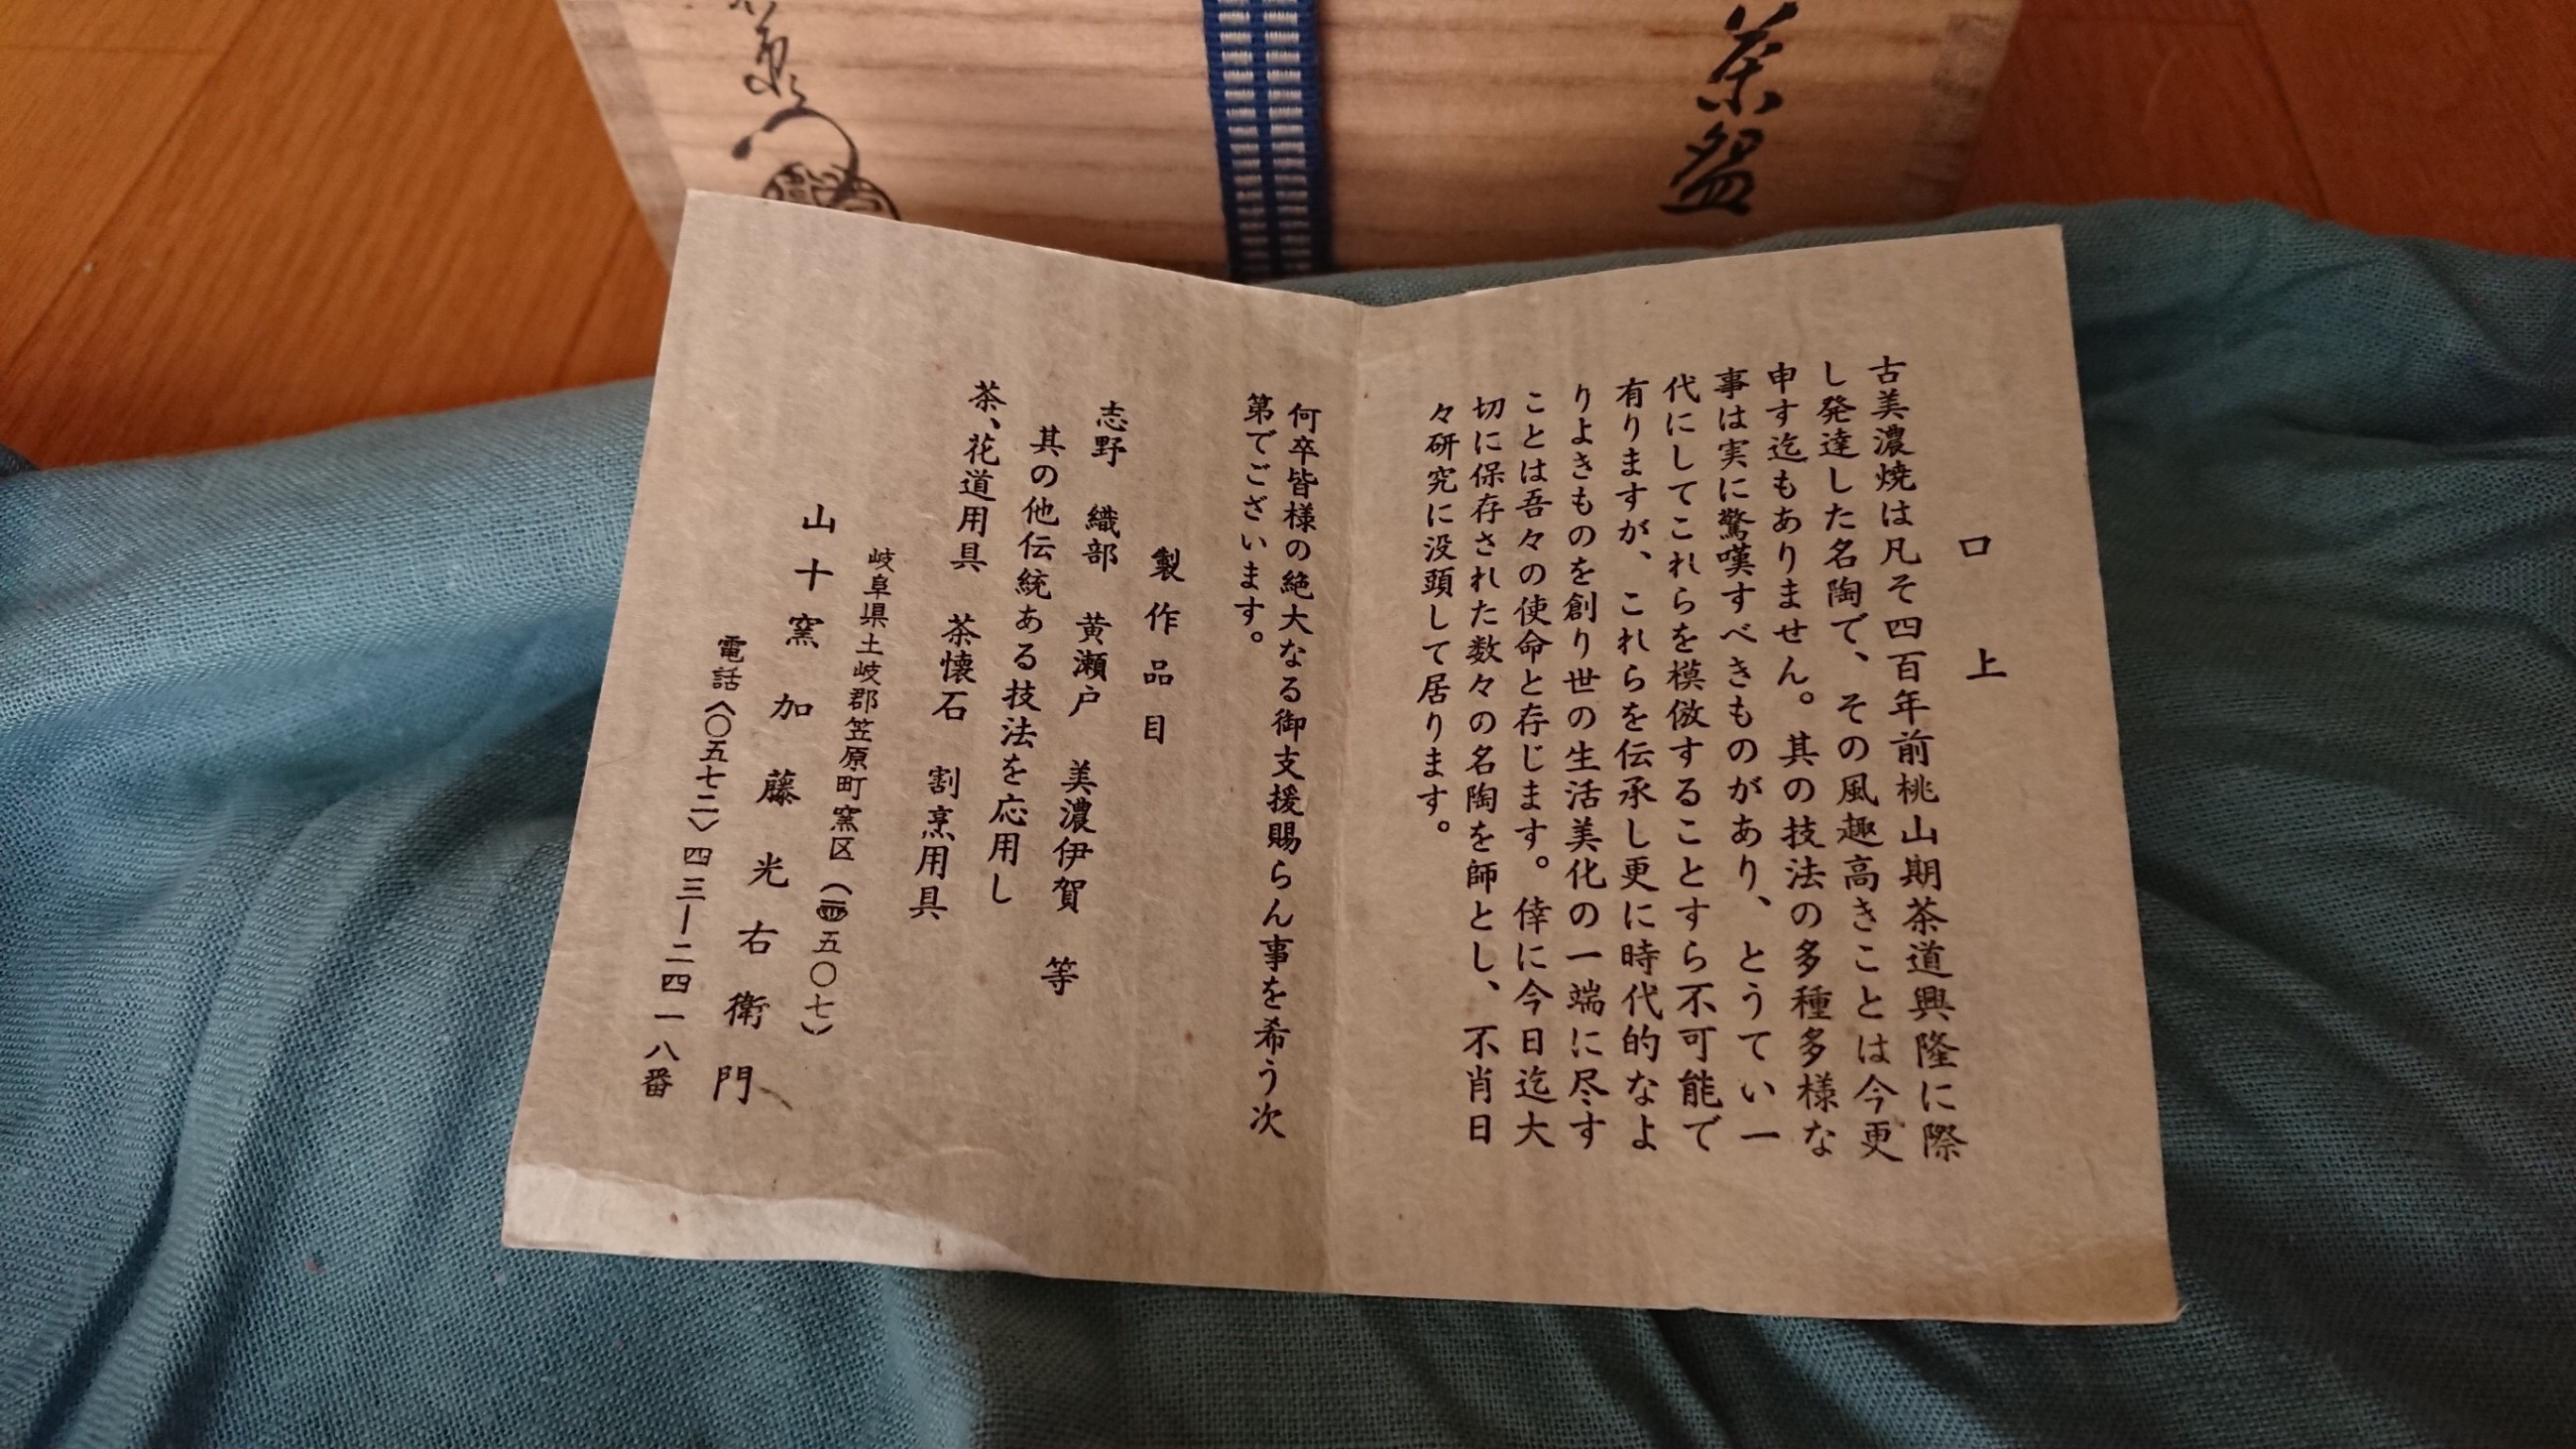 茶盌
口上
古美濃焼は凡そ四百年前桃山期茶道興隆に際
し発達した名陶で、その風趣高きことは今更
申す迄もありません。其の技法の多種多様な
事は実に驚嘆すべきものがあり、とうてい一
代にしてこれらを模倣することすら不可能で
有りますが、これらを伝承し更に時代的なよ
りよきものを創り世の生活美化の一端に尽す
ことは吾々の使命と存じます。倖に今日迄大
切に保存された数々の名陶を師とし、不肖日
々研究に没頭して居ります。
何卒皆様の絶大なる御支援賜らん事を希う次
第でございます。
製作品目
志野 織部 黄瀬戸 美濃伊賀 等
其の他伝統ある技法を応用し
茶、花道用具 茶懐石 割烹用具
岐阜県土岐郡笠原町窯区(五〇七)
山十窯 加藤光右衛門
電話〈〇五七二〉四三ー二四一八番